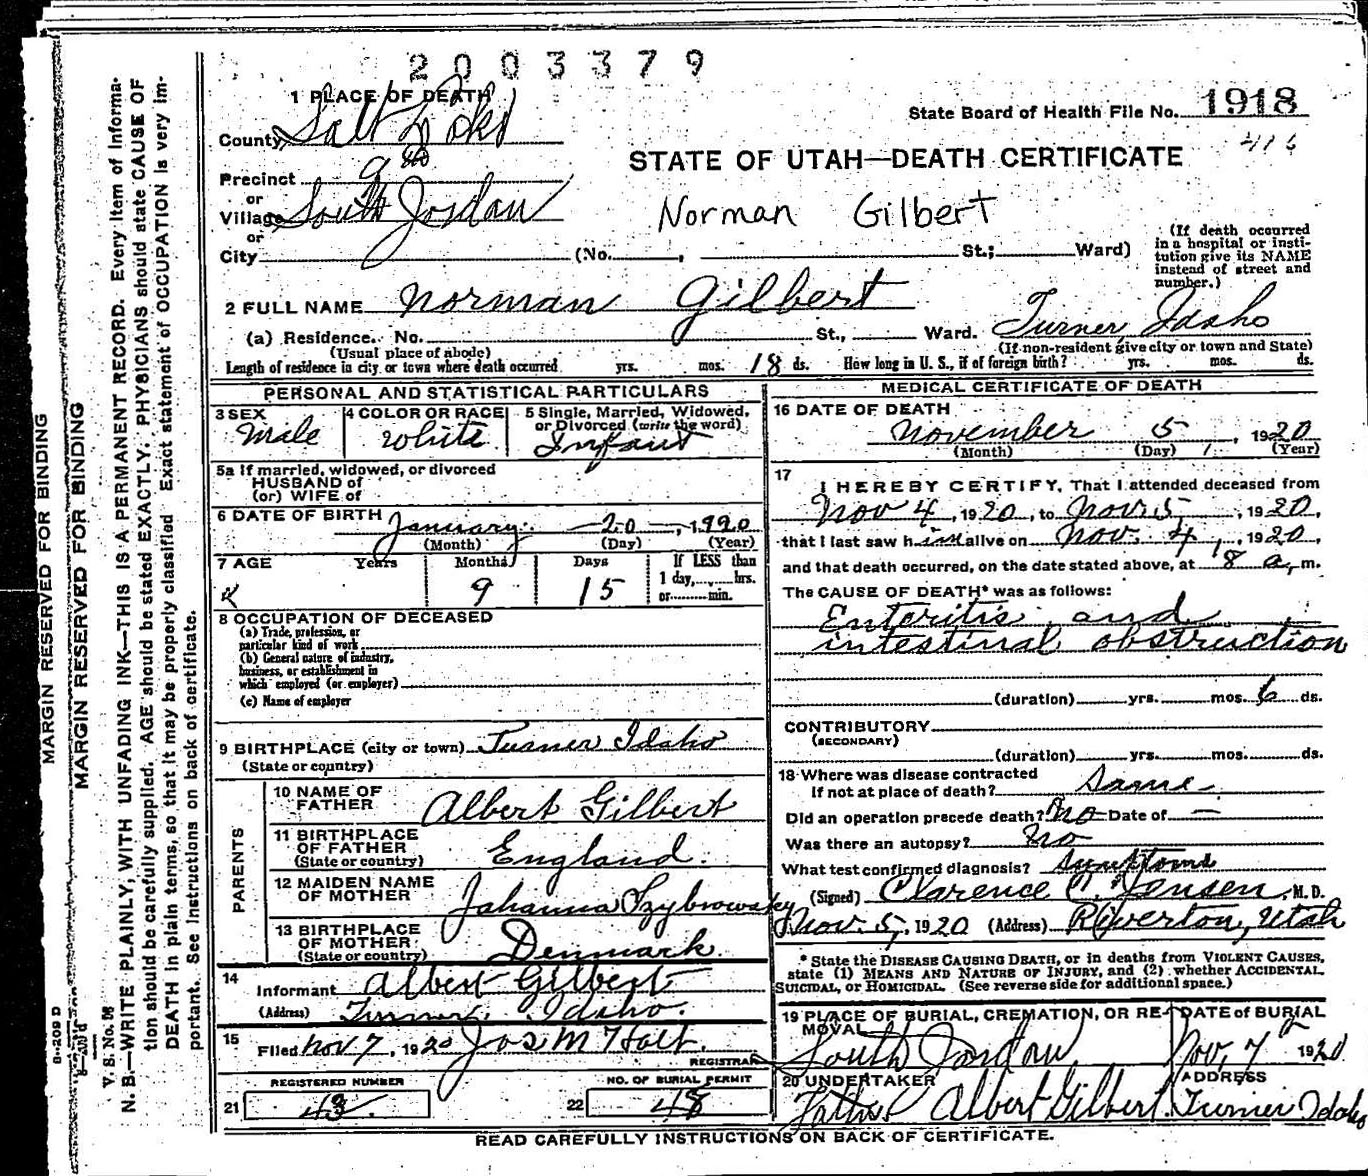 2003379
1 PLACE OF DEATH
State Board of Health File No. 1918
County Salt Lake
416
STATE OF UTAH—DEATH CERTIFICATE
Precinct 9
or
Village South Jordan
Norman Gilbert
or
City (No. , St.; Ward)
(If death occurred
in a hospital or insti-
tution give its NAME
instead of street and
number.)
2 FULL NAME Norman Gilbert
(a) Residence. No. St., Ward. Turner, Idaho
(Usual place of abode) (If non-resident give city or town and State)
Length of residence in city or town where death occurred yrs. mos. 18 ds. How long in U. S., if of foreign birth? yrs. mos. ds.
PERSONAL AND STATISTICAL PARTICULARS
3 SEX
Male
4 COLOR OR RACE
White
5 Single, Married, Widowed,
or Divorced (write the word)
Infant
5a If married, widowed, or divorced
HUSBAND of
(or) WIFE of
6 DATE OF BIRTH January 20, 1920
(Month) (Day) (Year)
7 AGE Years Months Days If LESS than
9 15 1 day, hrs.
or min.
8 OCCUPATION OF DECEASED
(a) Trade, profession, or
particular kind of work
(b) General nature of industry,
business, or establishment in
which employed (or employer)
(c) Name of employer
9 BIRTHPLACE (city or town) Turner Idaho
(State or country)
PARENTS
10 NAME OF
FATHER Albert Gilbert
11 BIRTHPLACE
OF FATHER
(State or country) England.
12 MAIDEN NAME
OF MOTHER Johanna Szybrowsky
13 BIRTHPLACE
OF MOTHER
(State or country) Denmark
14
Informant Albert Gilbert
(Address) Turner, Idaho.
15
Filed Nov 7, 1920 Jos M Holt.
REGISTRAR
REGISTERED NUMBER
21 43
NO. OF BURIAL PERMIT
22 48
MEDICAL CERTIFICATE OF DEATH
16 DATE OF DEATH
November 5, 1920
(Month) (Day) (Year)
17
I HEREBY CERTIFY, That I attended deceased from
Nov 4, 1920, to Nov. 5, 1920,
that I last saw h im alive on Nov. 4, 1920,
and that death occurred, on the date stated above, at 8 a. m.
The CAUSE OF DEATH* was as follows:
Enteritis and
intestinal obstruction
(duration) yrs. mos. 6 ds.
CONTRIBUTORY
(SECONDARY)
(duration) yrs. mos. ds.
18 Where was disease contracted
If not at place of death? Same
Did an operation precede death? No Date of —
Was there an autopsy? No
What test confirmed diagnosis? Symptoms
(Signed) Clarence C. Jensen, M. D.
Nov. 5, 1920 (Address) Riverton, Utah
* State the DISEASE CAUSING DEATH, or in deaths from VIOLENT CAUSES,
state (1) MEANS AND NATURE OF INJURY, and (2) whether ACCIDENTAL
SUICIDAL, or HOMICIDAL. (See reverse side for additional space.)
19 PLACE OF BURIAL, CREMATION, OR RE-
MOVAL
South Jordan
DATE of BURIAL
Nov. 7 1920
20 UNDERTAKER
Father Albert Gilbert
ADDRESS
Turner Idaho
READ CAREFULLY INSTRUCTIONS ON BACK OF CERTIFICATE.
MARGIN RESERVED FOR BINDING
MARGIN RESERVED FOR BINDING
S-209 D
V. S. No. 56
N. B.—WRITE PLAINLY, WITH UNFADING INK—THIS IS A PERMANENT RECORD. Every item of informa-
tion should be carefully supplied. AGE should be stated EXACTLY. PHYSICIANS should state CAUSE OF
DEATH in plain terms, so that it may be properly classified. Exact statement of OCCUPATION is very im-
portant. See instructions on back of certificate.